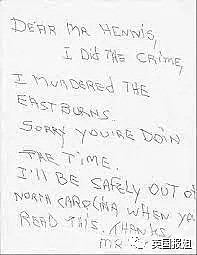 DEAR MR HENNIS,
I DID THE CRIME,
I MURDERED THE
EASTBURNS.
SORRY YOU'RE DOIN
THE TIME.
I'LL BE SAFELY OUT O
NORTH CAROLINA WHEN YO
READ THIS. THANKS,
MR
英国报姐